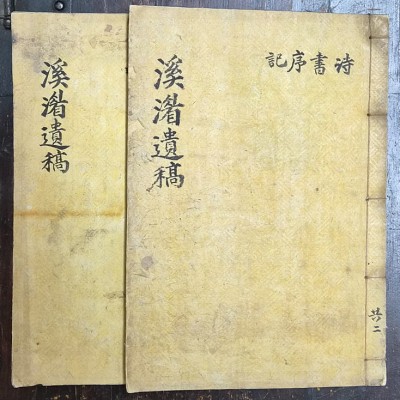 詩書序記
溪渚遺稿
共二
溪渚遺稿